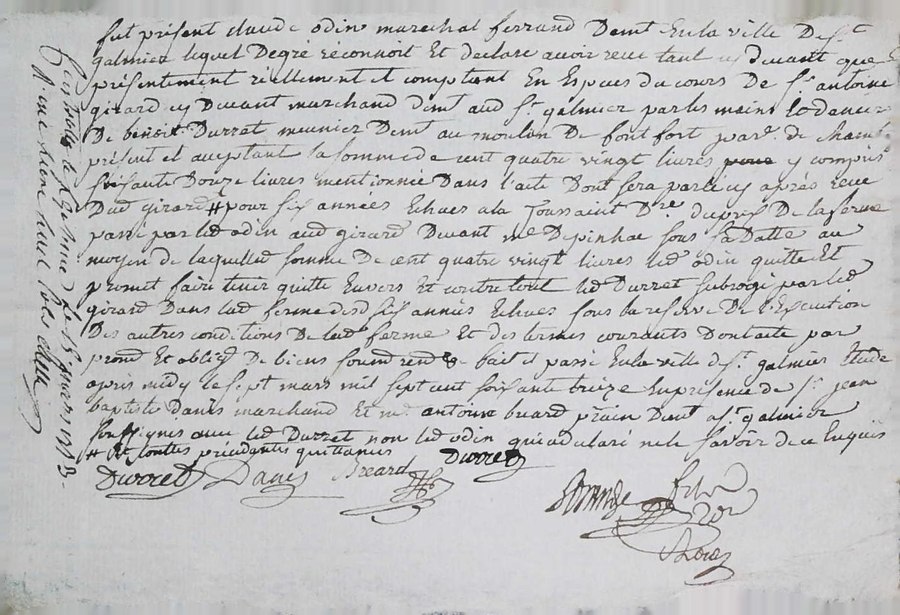 fut présent claude odin marechal ferrand demt en la ville de st
galmier lequel de gré réconnoit et declare avoir reçu tant cy devant que
présentement réellement et comptant en espèces du cours de sr antoine
girard cy devant marchand demt aud st galmier par les mains et deniers
de benoit durret meunier demt au moulin de fontfort parse de
présent et acceptant la somme de cent quatre vingt livres y compris
soixante douze livres mentionnée dans l'acte dont sera parlé cy après reçue
dud girard # pour six années echues a la toussaint dre du prix de la ferme
passé par led odin aud girard devant me depinhac sous sa datte au
moyen de laquelled somme de cent quatre vingt livres led odin quitte et
promet faire tenir quitte envers et contre tout led durret subrogé par led
girard dans lad ferme desd six années echues sous la reserve de l'execution
des autres conditions de lad ferme et des termes courants dont acte par
prom et oblig de biens soum rend & fait et passé en la ville de st galmier étude
après midy le sept mars mil sept cent soixante treize en présence de sr jean
baptiste danès marchand et me antoine breard prain demt a st galmier
soussignes avec led durret non led odin qui a declaré ne le savoir de ce enquis
# et toutes précédantes quittances
Durret Danès Breard Durret